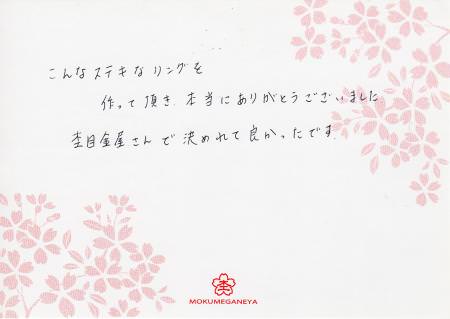 こんなステキなリングを
作って頂き、本当にありがとうございました。
杢目金屋さんで決めれて良かったです。
杢
MOKUMEGANEYA